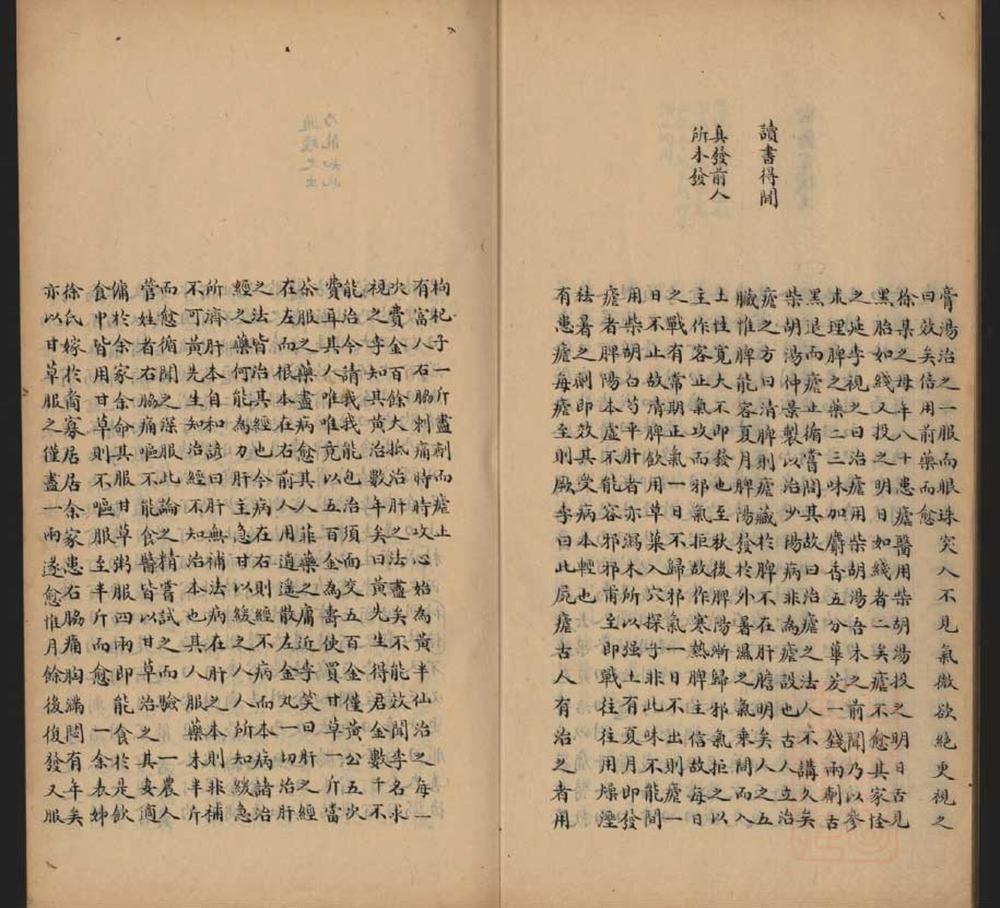 讀書得間
真發前人
所未發
膏湯治之一服而眼珠突入不見氣微欲絶更視之
曰效矣倍用前藥而愈
徐某之母年八十患瘧醫用柴胡湯投之明日舌見
黑胎如綫又投之明日如綫者二矣瘧不愈其家怪
之延李視之曰治瘧用柴胡湯吾未之前聞乃以參
朮理脾之藥二三味加麝香五分蓽茇一錢兩劑舌
黑退而瘧止循嘗問其故曰治瘧之法人不講久矣
柴胡湯仲景製以治少陽病非為瘧設也古人立治
瘧之方曰清脾則瘧藏於脾不在肝膽明矣人之五
臟惟脾能容夏月脾陽發於外暑濕之氣乘間而入
土性寬大不即發也至秋後脾陽漸歸邪氣拒之以
主作客正氣攻而邪氣拒故作寒熱脾主信故每日
之戰有常期正氣一日不歸邪氣一日不出故瘧一
日不止故清脾飲用草菓入穴探子非此味不能間
用柴胡白芍平肝者亦瀉木所以强土有夏月即發
瘧者脾陽虛不能容邪邪甫至即戰往往用燥溼
祛暑之劑即效其受病本輕也
有患瘧每瘧至則厥李曰此屍瘧古人有治之者用
枸杞子一斤盡劑而瘧止
有富人右脇刺痛時時攻心始為黃半仙治之每一
次費金百餘大抵治肝之法盡矣不能效聞李名求
視之李知其黃治數年矣曰黃先生得君金數千不
能治今請我我能包治須面交五百金僅黃公五次
費耳其人唯唯竟以五百金為壽使買甘草一斤當
茶服之藥盡病愈其人李笑曰肝之經
在左而根本在右前人用逍遙散左金丸一切治肝
之法皆治其經也今病在右則經不病而本病諸治
經之藥何能為力肝主急甘以緩之人人所知緩急
所濟肝本自和諺曰肝無補法在肝之本則非補
不可黃先生知治經不知治本也其人服藥未半斤
而愈循聞之深服此論之精嘗試之而驗一農人
管姓者右脇痛嘔不能食醫皆以甘草治之其妾適
傭於余家余命服甘草粥服四兩即能食於是飲
食中皆用甘草則不嘔服至半斤而愈一余表姊
徐氏嫁於裔寡居居余家患右脇痛胸滿悶有年矣
亦以甘草服之僅盡一兩遂愈惟月餘後復發又服